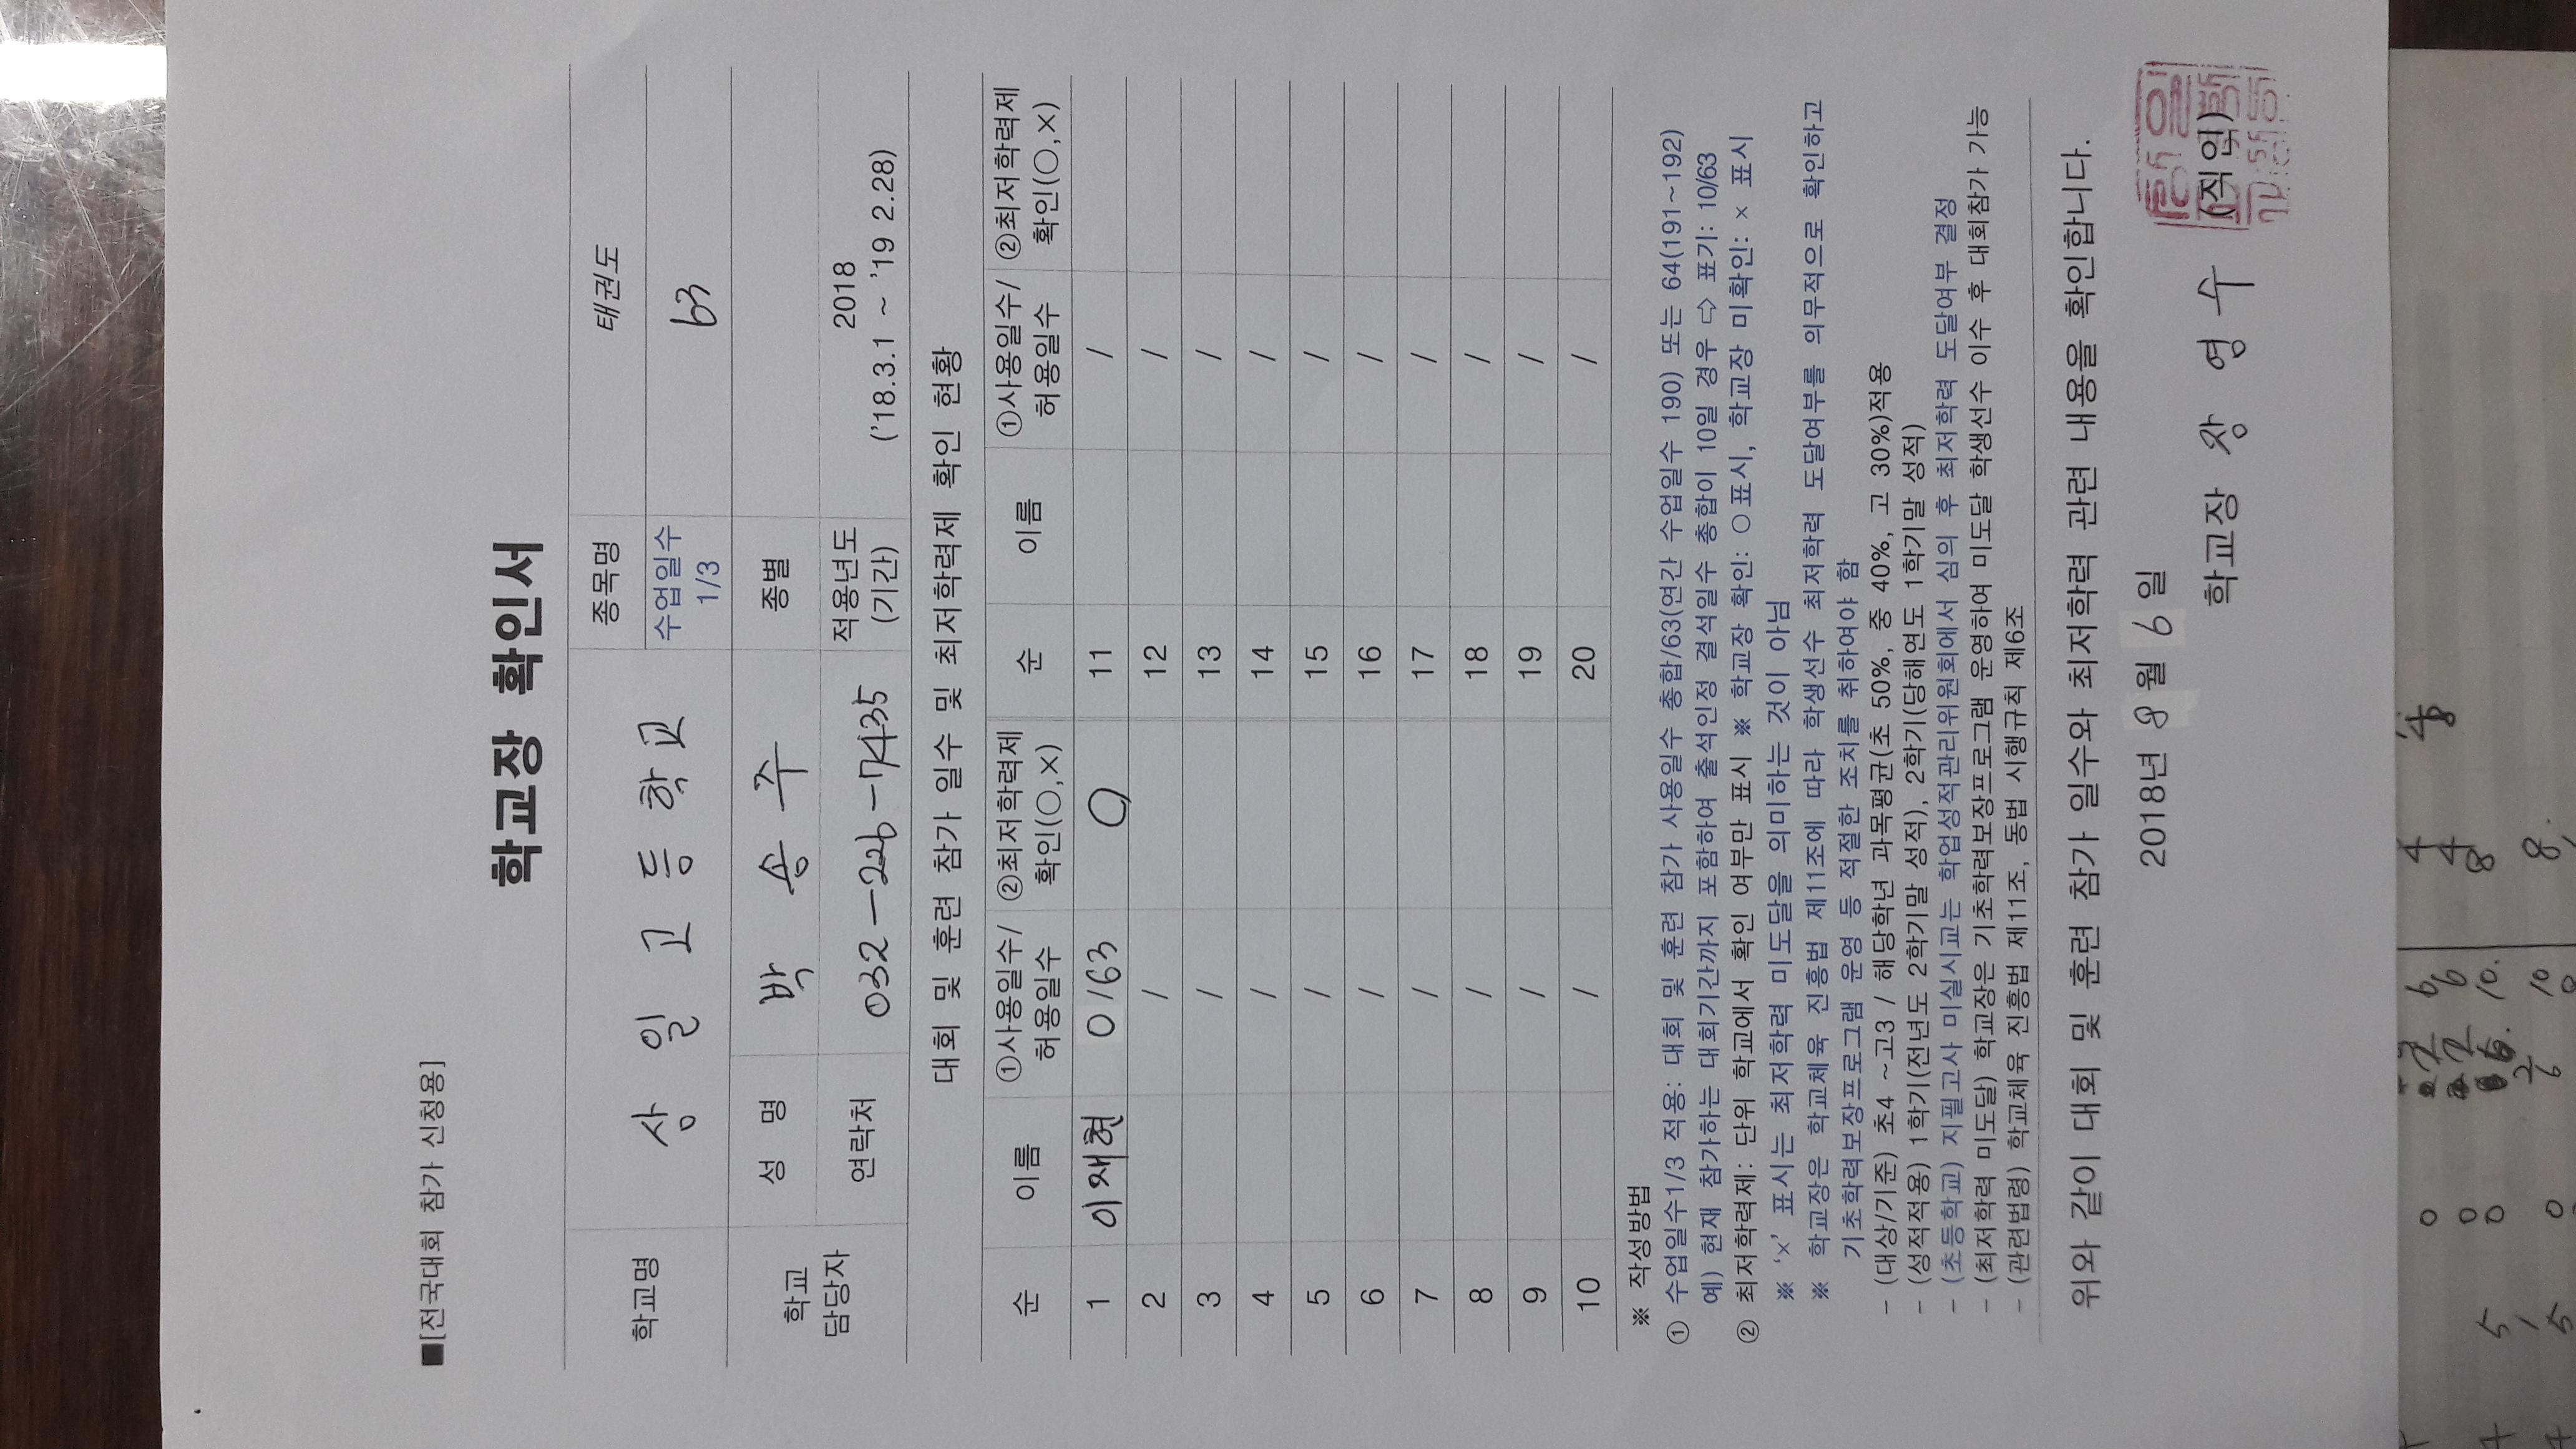 ■[전국대회 참가 신청용]
학교장 확인서
학교명 상 일 고 등 학 교 종목명 태권도
수업일수 1/3 63
학교 담당자 성 명 박 송 주 종별
연락처 032-226-7435 적용년도 (기간) 2018 ('18.3.1 ~ '19 2.28)
대회 및 훈련 참가 일수 및 최저학력제 확인 현황
순 이름 ①사용일수/ 허용일수 ②최저학력제 확인(○,×) 순 이름 ①사용일수/ 허용일수 ②최저학력제 확인(○,×)
1 이재혁 0/63 ○ 11 /
2 / 12 /
3 / 13 /
4 / 14 /
5 / 15 /
6 / 16 /
7 / 17 /
8 / 18 /
9 / 19 /
10 / 20 /
※ 작성방법
① 수업일수1/3 적용: 대회 및 훈련 참가 사용일수 총합/63(연간 수업일수 190) 또는 64(191~192)
예) 현재 참가하는 대회기간까지 포함하여 출석인정 결석일수 총합이 10일 경우 ⇨ 표기: 10/63
② 최저학력제: 단위 학교에서 확인 여부만 표시 ※ 학교장 확인: ○표시, 학교장 미확인: × 표시
※ '×' 표시는 최저학력 미도달을 의미하는 것이 아님
※ 학교장은 학교체육 진흥법 제11조에 따라 학생선수 최저학력 도달여부를 의무적으로 확인하고
기초학력보장프로그램 운영 등 적절한 조치를 취하여야 함
- (대상/기준) 초4 ~고3 / 해당학년 과목평균(초 50%, 중 40%, 고 30%)적용
- (성적적용) 1학기(전년도 2학기말 성적), 2학기(당해연도 1학기말 성적)
- (초등학교) 지필고사 미실시교는 학업성적관리위원회에서 심의 후 최저학력 도달여부 결정
- (최저학력 미도달) 학교장은 기초학력보장프로그램 운영하여 미도달 학생선수 이수 후 대회참가 가능
- (관련법령) 학교체육 진흥법 제11조, 동법 시행규칙 제6조
위와 같이 대회 및 훈련 참가 일수와 최저학력 관련 내용을 확인합니다.
2018년 8월 6일
학교장 장 영 수 (직인)